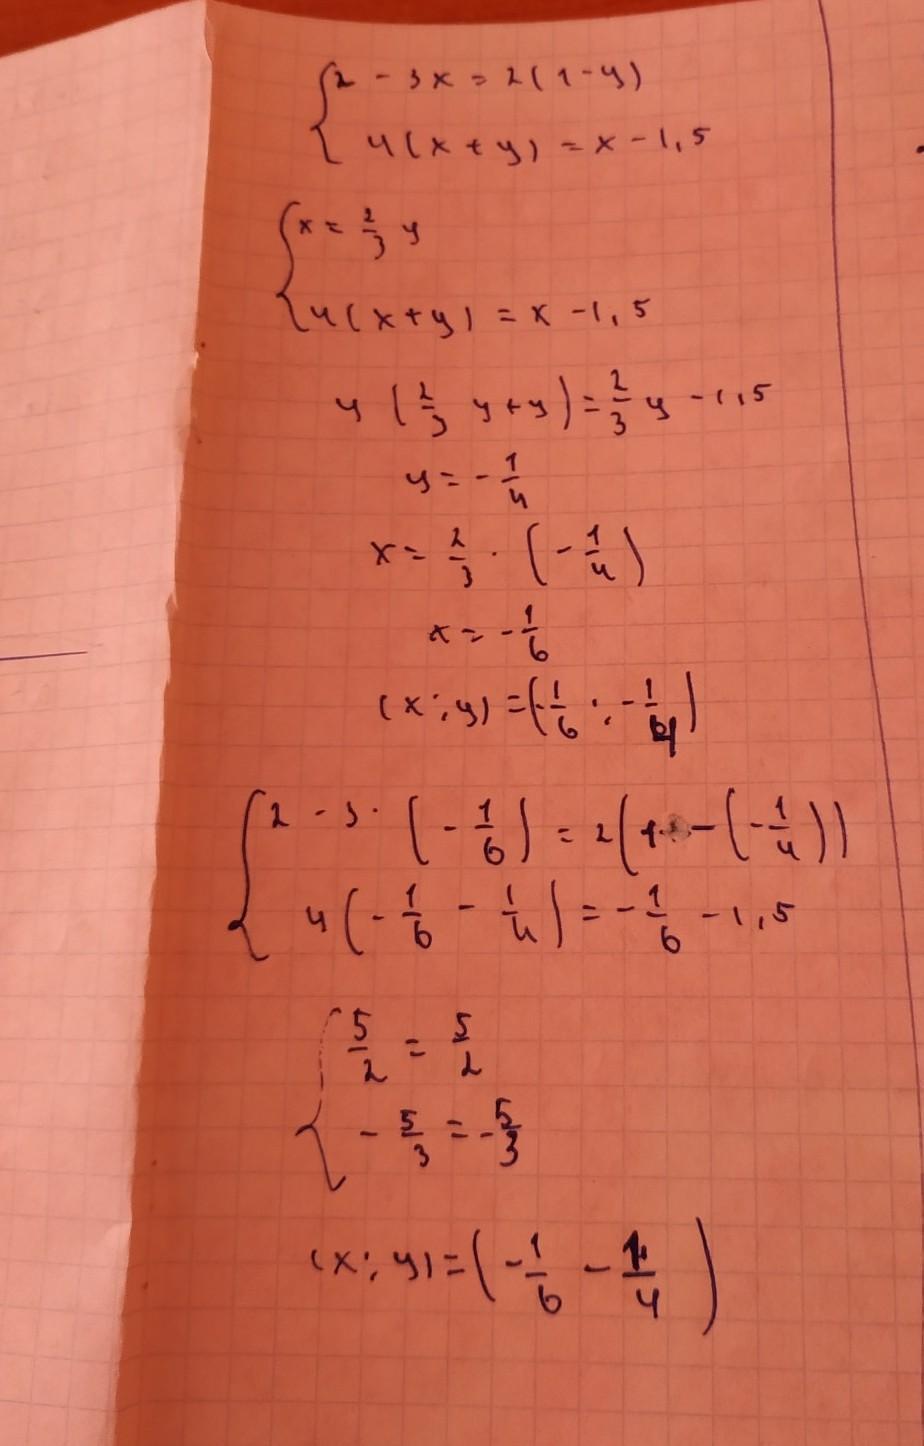 {2 - 3x = 2(1-y)
4(x+y) = x-1,5
{x = 2/3 y
4(x+y) = x-1,5
4(2/3 y+y) = 2/3 y -1,5
y = -1/4
x = 2/3 · (-1/4)
x = -1/6
(x;y) = (-1/6; -1/4)
{2 - 3 · (-1/6) = 2(1-(-1/4))
4(-1/6 - 1/4) = -1/6 -1,5
{5/2 = 5/2
-5/3 = -5/3
(x;y) = (-1/6 -1/4)